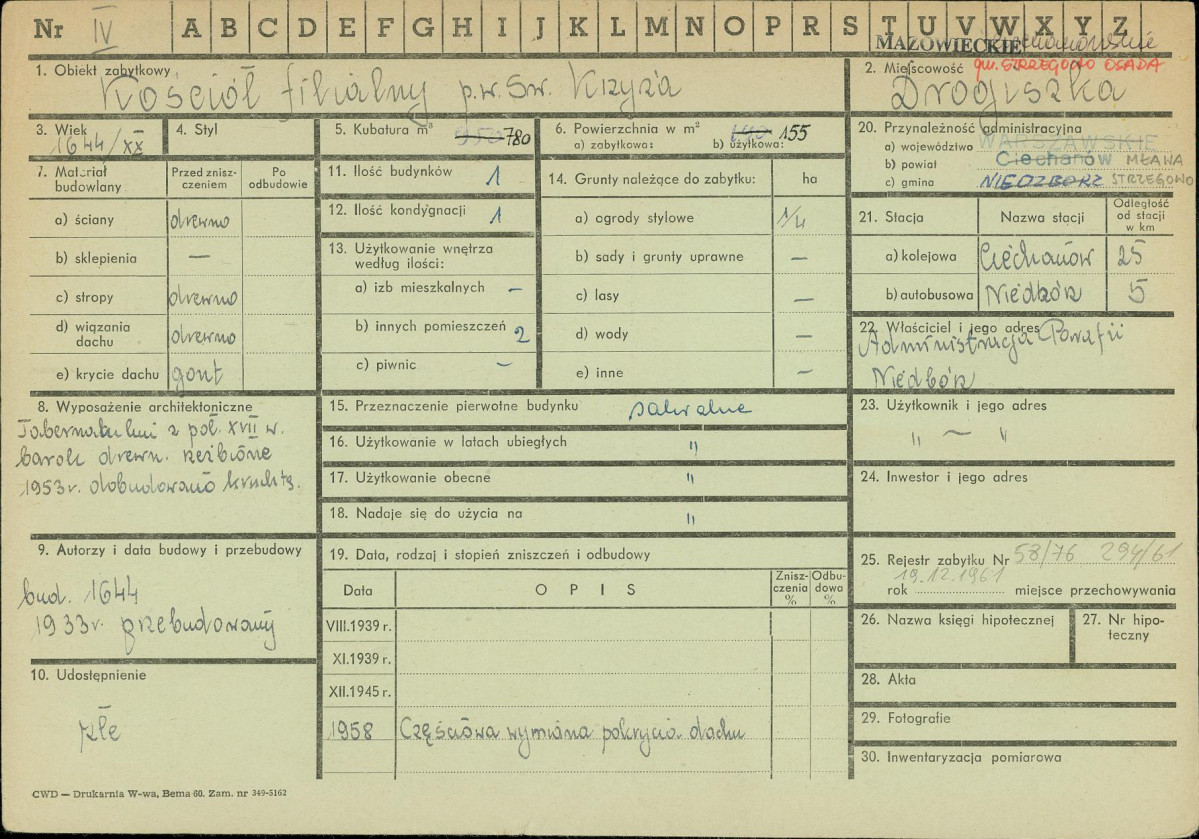 Nr IV A B C D E F G H I J K L M N O P R S T U V W X Y Z
MAZOWIECKIE
1. Obiekt zabytkowy
Kościół filialny p.w. Św. Krzyża
2. Miejscowość gm. STRZEGOWO OSADA
Drogiszka
3. Wiek
1644/XX
4. Styl
5. Kubatura m³
780
6. Powierzchnia w m²
a) zabytkowa: b) użytkowa: 155
7. Materiał budowlany
Przed zniszczeniem
Po odbudowie
a) ściany drewno
b) sklepienia —
c) stropy drewno
d) wiązania dachu drewno
e) krycie dachu gont
8. Wyposażenie architektoniczne
Tabernakulum z poł. XVII w.
barok drewn. rzeźbione
1953 r. dobudowano kruchtę.
9. Autorzy i data budowy i przebudowy
bud. 1644
1933 r. przebudowany
10. Udostępnienie
złe
11. Ilość budynków 1
12. Ilość kondygnacji 1
13. Użytkowanie wnętrza
według ilości:
a) izb mieszkalnych —
b) innych pomieszczeń 2
c) piwnic —
14. Grunty należące do zabytku: ha
a) ogrody stylowe 1/4
b) sady i grunty uprawne —
c) lasy —
d) wody —
e) inne —
15. Przeznaczenie pierwotne budynku sakralne
16. Użytkowanie w latach ubiegłych "
17. Użytkowanie obecne "
18. Nadaje się do użycia na "
19. Data, rodzaj i stopień zniszczeń i odbudowy
Data OPIS Zniszczenia % Odbudowa %
VIII.1939 r.
XI.1939 r.
XII.1945 r.
1958 Częściowa wymiana pokrycia dachu
20. Przynależność administracyjna
a) województwo WARSZAWSKIE
b) powiat Ciechanów MŁAWA
c) gmina NIEDZBORZ STRZEGOWO
21. Stacja Nazwa stacji Odległość od stacji w km
a) kolejowa Ciechanów 25
b) autobusowa Niedbórz 5
22. Właściciel i jego adres
Administracja Parafii
Niedbórz
23. Użytkownik i jego adres
" — "
24. Inwestor i jego adres
25. Rejestr zabytku Nr 58/76 294/61
19.12.1961
rok miejsce przechowywania
26. Nazwa księgi hipotecznej
27. Nr hipoteczny
28. Akta
29. Fotografie
30. Inwentaryzacja pomiarowa
CWD — Drukarnia W-wa, Bema 60. Zam. nr 349-5162